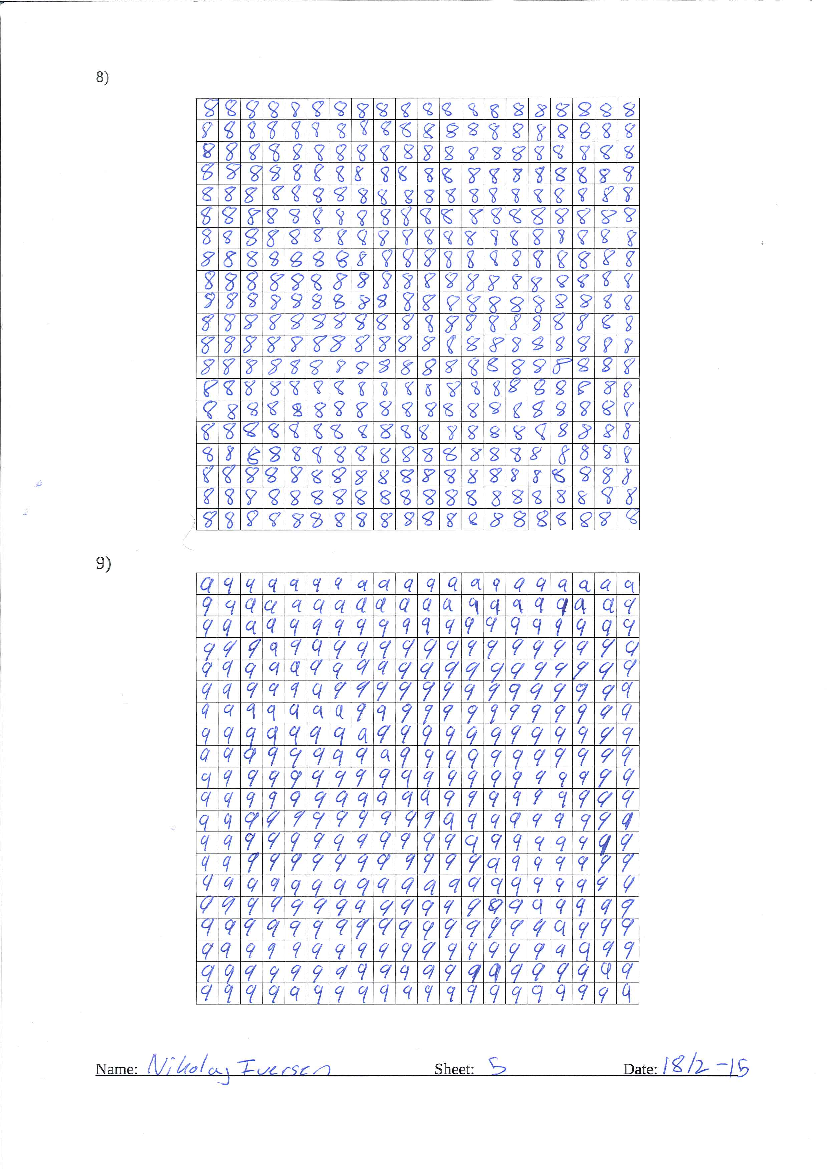 8)
8 8 8 8 8 8 8 8 8 8 8 8 8 8 8 8 8 8 8 8
8 8 8 8 8 8 8 8 8 8 8 8 8 8 8 8 8 8 8 8
8 8 8 8 8 8 8 8 8 8 8 8 8 8 8 8 8 8 8 8
8 8 8 8 8 8 8 8 8 8 8 8 8 8 8 8 8 8 8 8
8 8 8 8 8 8 8 8 8 8 8 8 8 8 8 8 8 8 8 8
8 8 8 8 8 8 8 8 8 8 8 8 8 8 8 8 8 8 8 8
8 8 8 8 8 8 8 8 8 8 8 8 8 8 8 8 8 8 8 8
8 8 8 8 8 8 8 8 8 8 8 8 8 8 8 8 8 8 8 8
8 8 8 8 8 8 8 8 8 8 8 8 8 8 8 8 8 8 8 8
8 8 8 8 8 8 8 8 8 8 8 8 8 8 8 8 8 8 8 8
8 8 8 8 8 8 8 8 8 8 8 8 8 8 8 8 8 8 8 8
8 8 8 8 8 8 8 8 8 8 8 8 8 8 8 8 8 8 8 8
8 8 8 8 8 8 8 8 8 8 8 8 8 8 8 8 8 8 8 8
8 8 8 8 8 8 8 8 8 8 8 8 8 8 8 8 8 8 8 8
8 8 8 8 8 8 8 8 8 8 8 8 8 8 8 8 8 8 8 8
8 8 8 8 8 8 8 8 8 8 8 8 8 8 8 8 8 8 8 8
8 8 8 8 8 8 8 8 8 8 8 8 8 8 8 8 8 8 8 8
8 8 8 8 8 8 8 8 8 8 8 8 8 8 8 8 8 8 8 8
8 8 8 8 8 8 8 8 8 8 8 8 8 8 8 8 8 8 8 8
8 8 8 8 8 8 8 8 8 8 8 8 8 8 8 8 8 8 8 8
9)
9 9 9 9 9 9 9 9 9 9 9 9 9 9 9 9 9 9 9 9
9 9 9 9 9 9 9 9 9 9 9 9 9 9 9 9 9 9 9 9
9 9 9 9 9 9 9 9 9 9 9 9 9 9 9 9 9 9 9 9
9 9 9 9 9 9 9 9 9 9 9 9 9 9 9 9 9 9 9 9
9 9 9 9 9 9 9 9 9 9 9 9 9 9 9 9 9 9 9 9
9 9 9 9 9 9 9 9 9 9 9 9 9 9 9 9 9 9 9 9
9 9 9 9 9 9 9 9 9 9 9 9 9 9 9 9 9 9 9 9
9 9 9 9 9 9 9 9 9 9 9 9 9 9 9 9 9 9 9 9
9 9 9 9 9 9 9 9 9 9 9 9 9 9 9 9 9 9 9 9
9 9 9 9 9 9 9 9 9 9 9 9 9 9 9 9 9 9 9 9
9 9 9 9 9 9 9 9 9 9 9 9 9 9 9 9 9 9 9 9
9 9 9 9 9 9 9 9 9 9 9 9 9 9 9 9 9 9 9 9
9 9 9 9 9 9 9 9 9 9 9 9 9 9 9 9 9 9 9 9
9 9 9 9 9 9 9 9 9 9 9 9 9 9 9 9 9 9 9 9
9 9 9 9 9 9 9 9 9 9 9 9 9 9 9 9 9 9 9 9
9 9 9 9 9 9 9 9 9 9 9 9 9 9 9 9 9 9 9 9
9 9 9 9 9 9 9 9 9 9 9 9 9 9 9 9 9 9 9 9
9 9 9 9 9 9 9 9 9 9 9 9 9 9 9 9 9 9 9 9
9 9 9 9 9 9 9 9 9 9 9 9 9 9 9 9 9 9 9 9
9 9 9 9 9 9 9 9 9 9 9 9 9 9 9 9 9 9 9 9
Name: Nikolaj Iversen Sheet: 5 Date: 18/2 -15